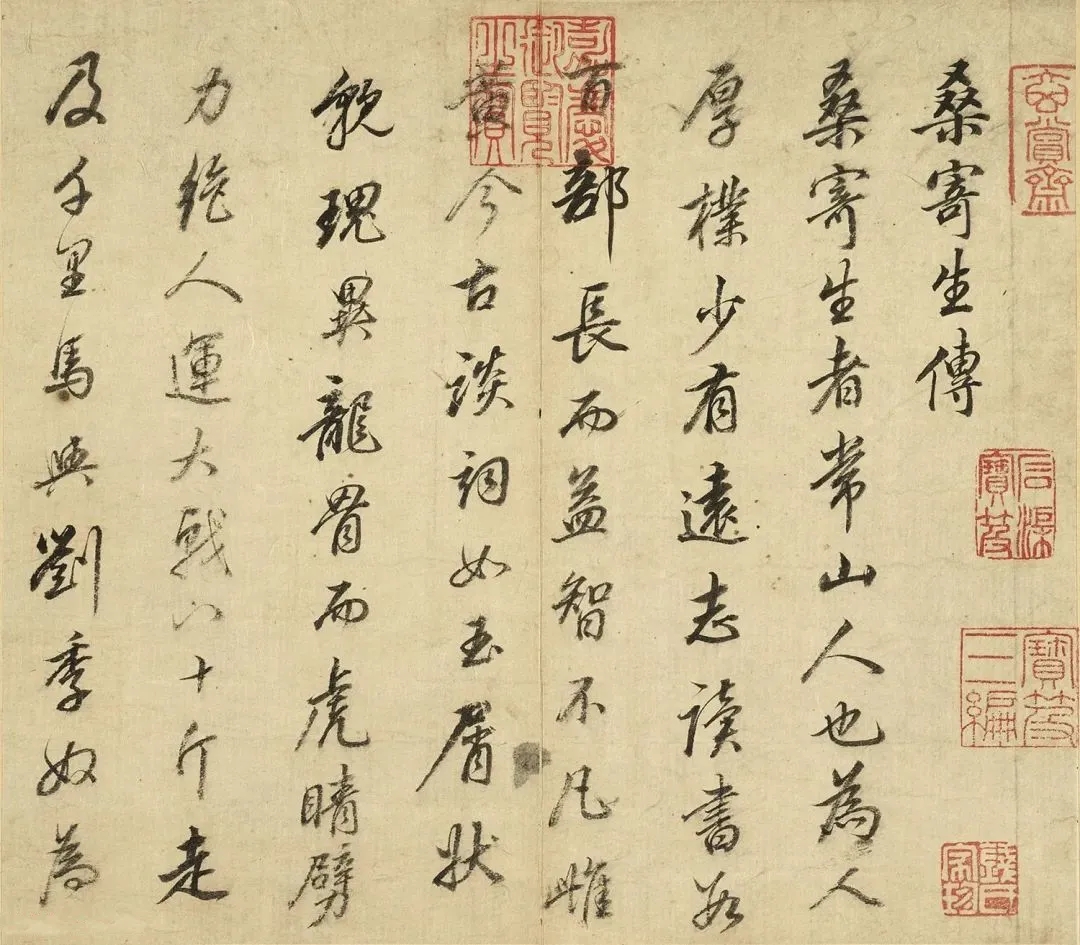 玄賞齋
石渠寶笈
寶笈三編
桑寄生傳
桑寄生者常山人也為人
厚樸少有遠志讀書數
百部長而益智不凡雌
黃今古談詞如玉屑狀
貌瑰異龍骨而虎睛劈
力絕人運大戟八十斤走
及千里馬與劉季奴為
嘉慶御覽之寶